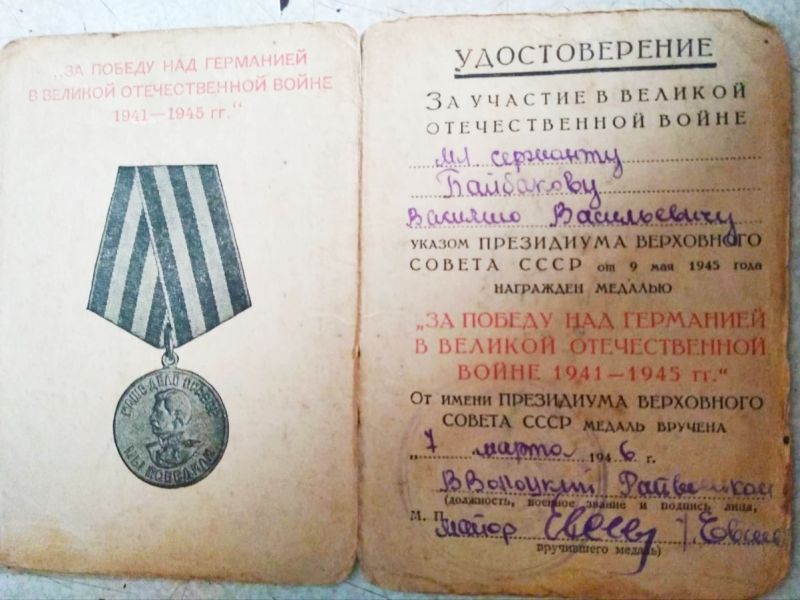 „ЗА ПОБЕДУ НАД ГЕРМАНИЕЙ
В ВЕЛИКОЙ ОТЕЧЕСТВЕННОЙ ВОЙНЕ
1941—1945 гг.“
НАШЕ ДЕЛО ПРАВОЕ
МЫ ПОБЕДИЛИ
УДОСТОВЕРЕНИЕ
ЗА УЧАСТИЕ В ВЕЛИКОЙ
ОТЕЧЕСТВЕННОЙ ВОЙНЕ
мл сержанту
Байбакову
Василию Васильевичу
УКАЗОМ ПРЕЗИДИУМА ВЕРХОВНОГО
СОВЕТА СССР от 9 мая 1945 года
НАГРАЖДЕН МЕДАЛЬЮ
„ЗА ПОБЕДУ НАД ГЕРМАНИЕЙ
В ВЕЛИКОЙ ОТЕЧЕСТВЕННОЙ
ВОЙНЕ 1941—1945 гг.“
От имени ПРЕЗИДИУМА ВЕРХОВНОГО
СОВЕТА СССР МЕДАЛЬ ВРУЧЕНА
„7 марта 1946 г.
(должность, военное звание и подпись лица,
М. П. майор Евсеев
вручившего медаль)